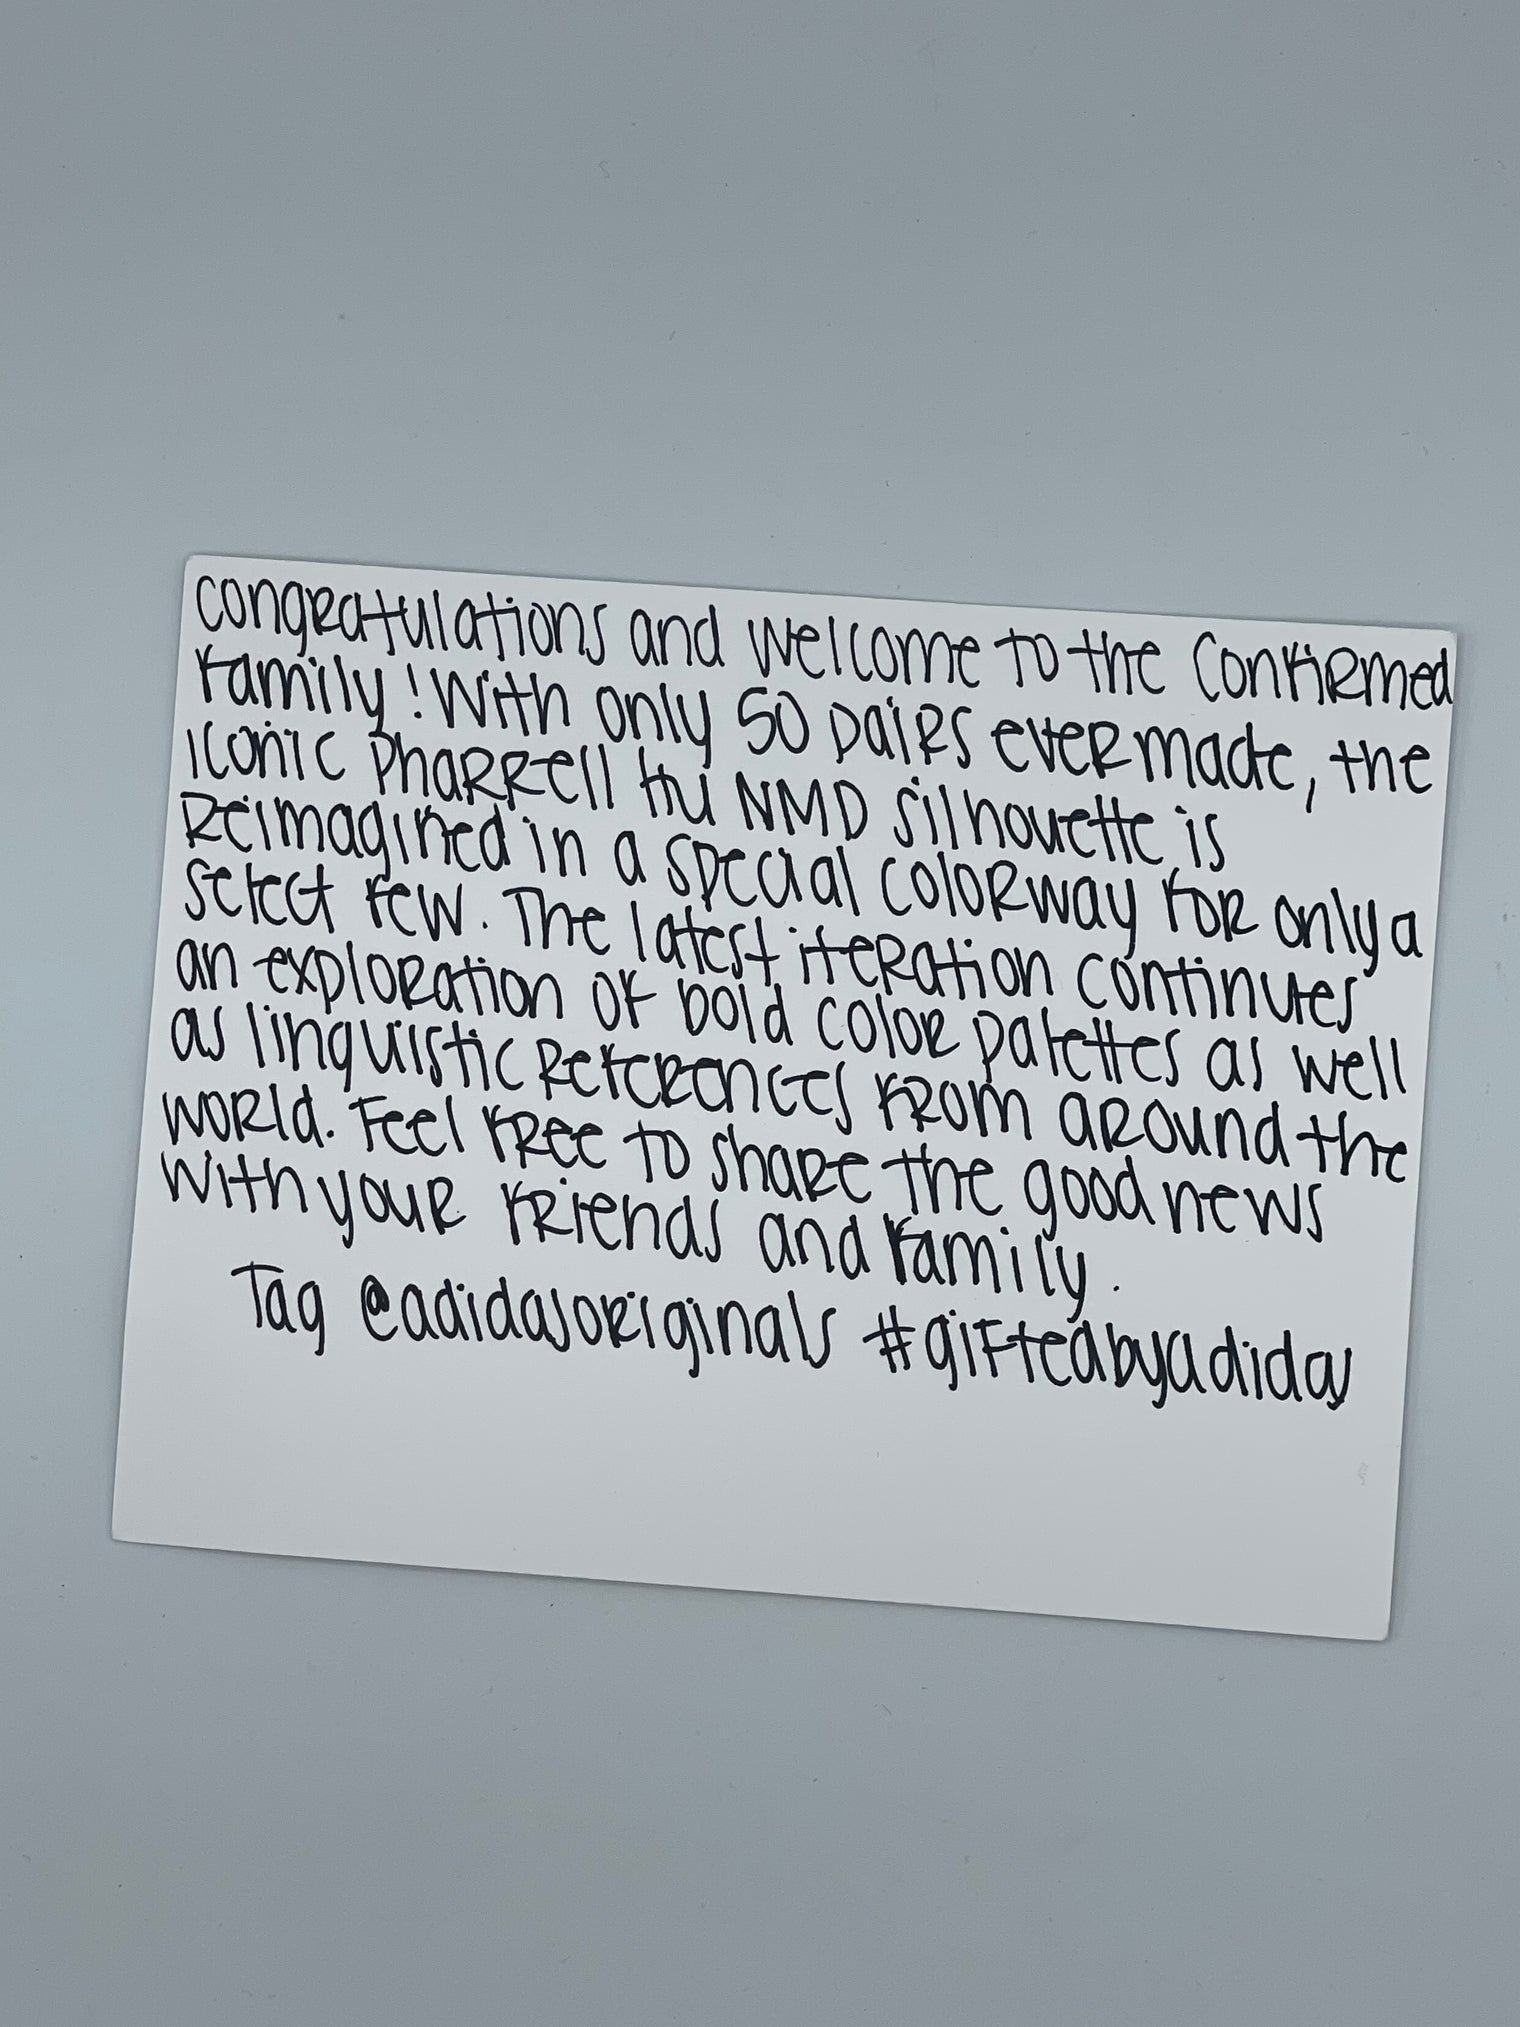 Congratulations and welcome to the Confirmed
family! With only 50 pairs ever made, the
iconic Pharrell Hu NMD silhouette is
Reimagined in a special colorway for only a
select few. The latest iteration continues
an exploration of bold color palettes as well
as linguistic references from around the
world. Feel free to share the good news
with your friends and family.
Tag @adidasoriginals #giftedbyadidas